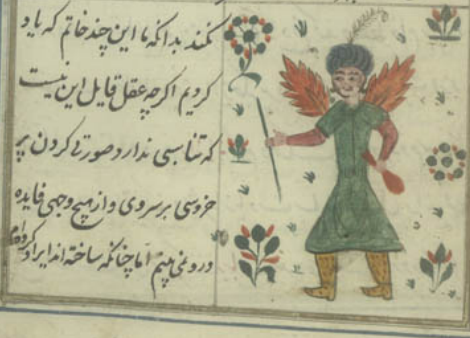 کنند بدانکه ما این چند خاتم که یاد
کردیم اگرچه عقل قایل این نیست
که تناسبی ندارد صورتی کردن پر
خروسی بر سر وی و از هیچ وجهی فایده
در وی نمی بینم اما چنانکه ساخته اند ایراد کرده ام